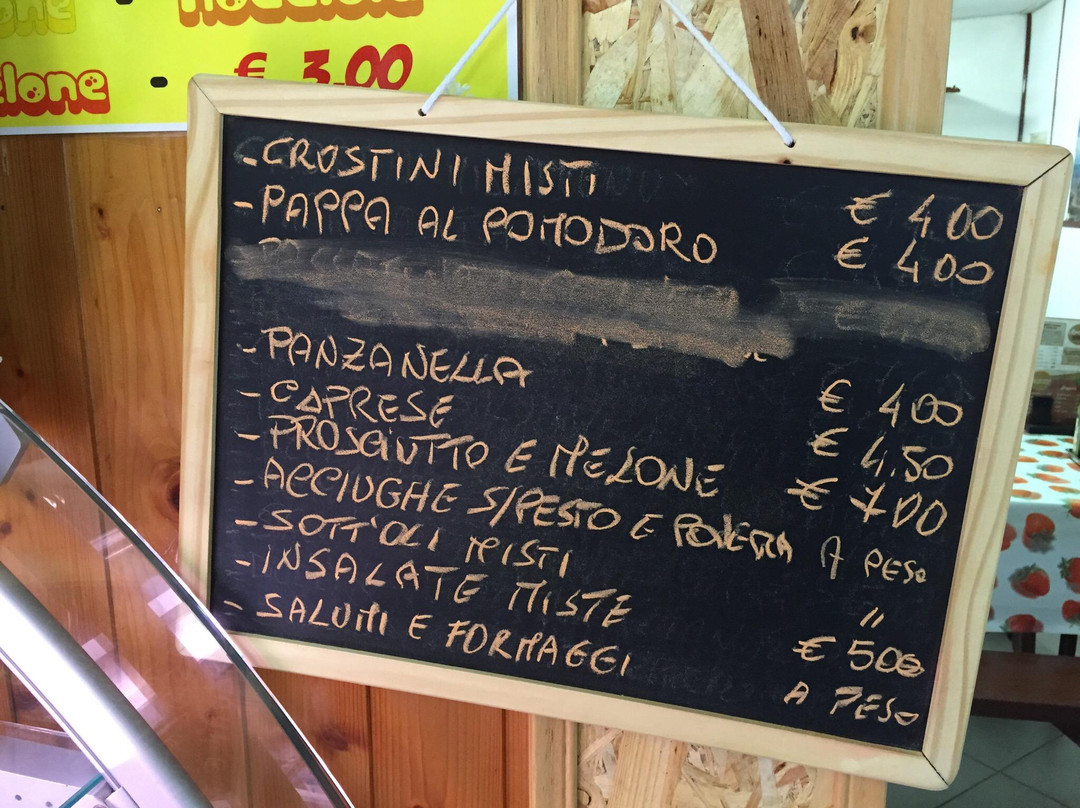 € 3.00
-CROSTINI MISTI € 4.00
-PAPPA AL POMODORO € 4.00
-PANZANELLA € 4.00
-CAPRESE € 4.50
-PROSCIUTTO E MELONE € 7.00
-ACCIUGHE S/PESTO E POVERA A PESO
-SOTT'OLI MISTI "
-INSALATE MISTE € 5.00
-SALUMI E FORMAGGI A PESO